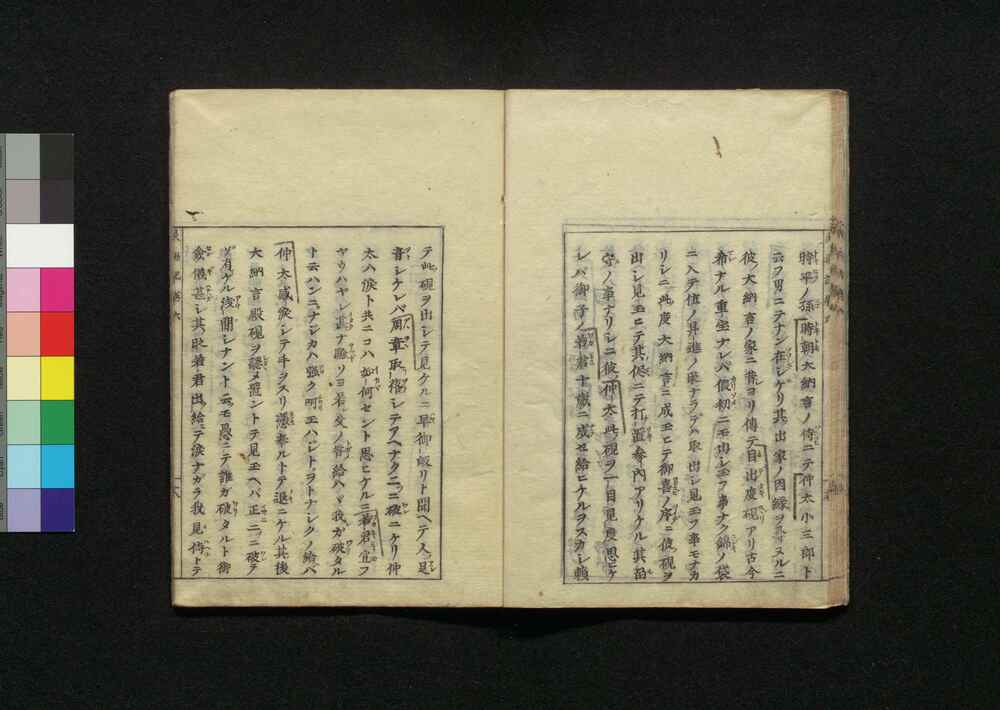 時平ノ孫時朝大納言ノ侍ニテ仲太小三郎ト
云フ男ニテナン在シケリ其出家ノ因縁ヲ尋ヌルニ
彼大納言ノ家ニ昔ヨリ傳テ目出度硯アリ古今
希ナル重宝ナレバ假初ニモ出シ玉フ事ナク錦ノ袋
ニ入テ位ノ昇進ノ築ナラデハ取出シ見玉フ事モナカ
リシニ此度大納言ニ成玉ヒテ御喜ノ序ニ彼硯ヲ
出シ見玉ヒテ其侭ニテ打置参内アリケル其留
守ノ事ナリシニ彼仲太此硯ヲ一目見度思ヒケ
レバ御子ノ若君十歳ニ成セ給ヒケルヲスカシ頼
テ此硯ヲ出シテ見クルニ早御皈リト聞ヘテ人ノ足
音シケレバ周章取落シテアヘナク二ニ破ニケリ仲
太ハ涙ト共ニコハ如何セント思ヒケルニ若君宣フ
ヤウハヤシ其ナ歎ソヨ若父ノ咎給ハヾ我ガ破タル
ト云ハンニナジカハ強ク呵玉ハントヲトナシクノ給バ
仲太感涙シテ手ヲスリ憑奉ルトテ退ニケル其後
大納言殿硯ヲ認メ置ントテ見玉ヘバ正ニ二ニ破テ
ゾ有ケル浅間シナント云モ愚ニテ誰ガ破タルト御
僉儀甚シ其時若君出給テ涙ナガラ我見侍トテ